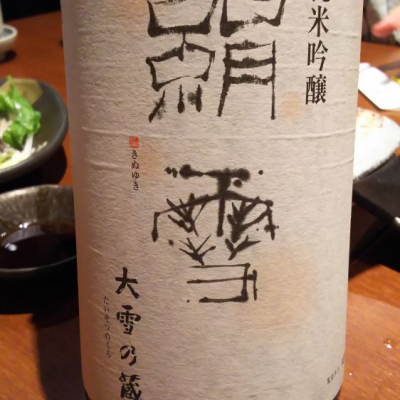 純米吟醸
絹雪
きぬゆき
大雪乃蔵
たいせつのくら